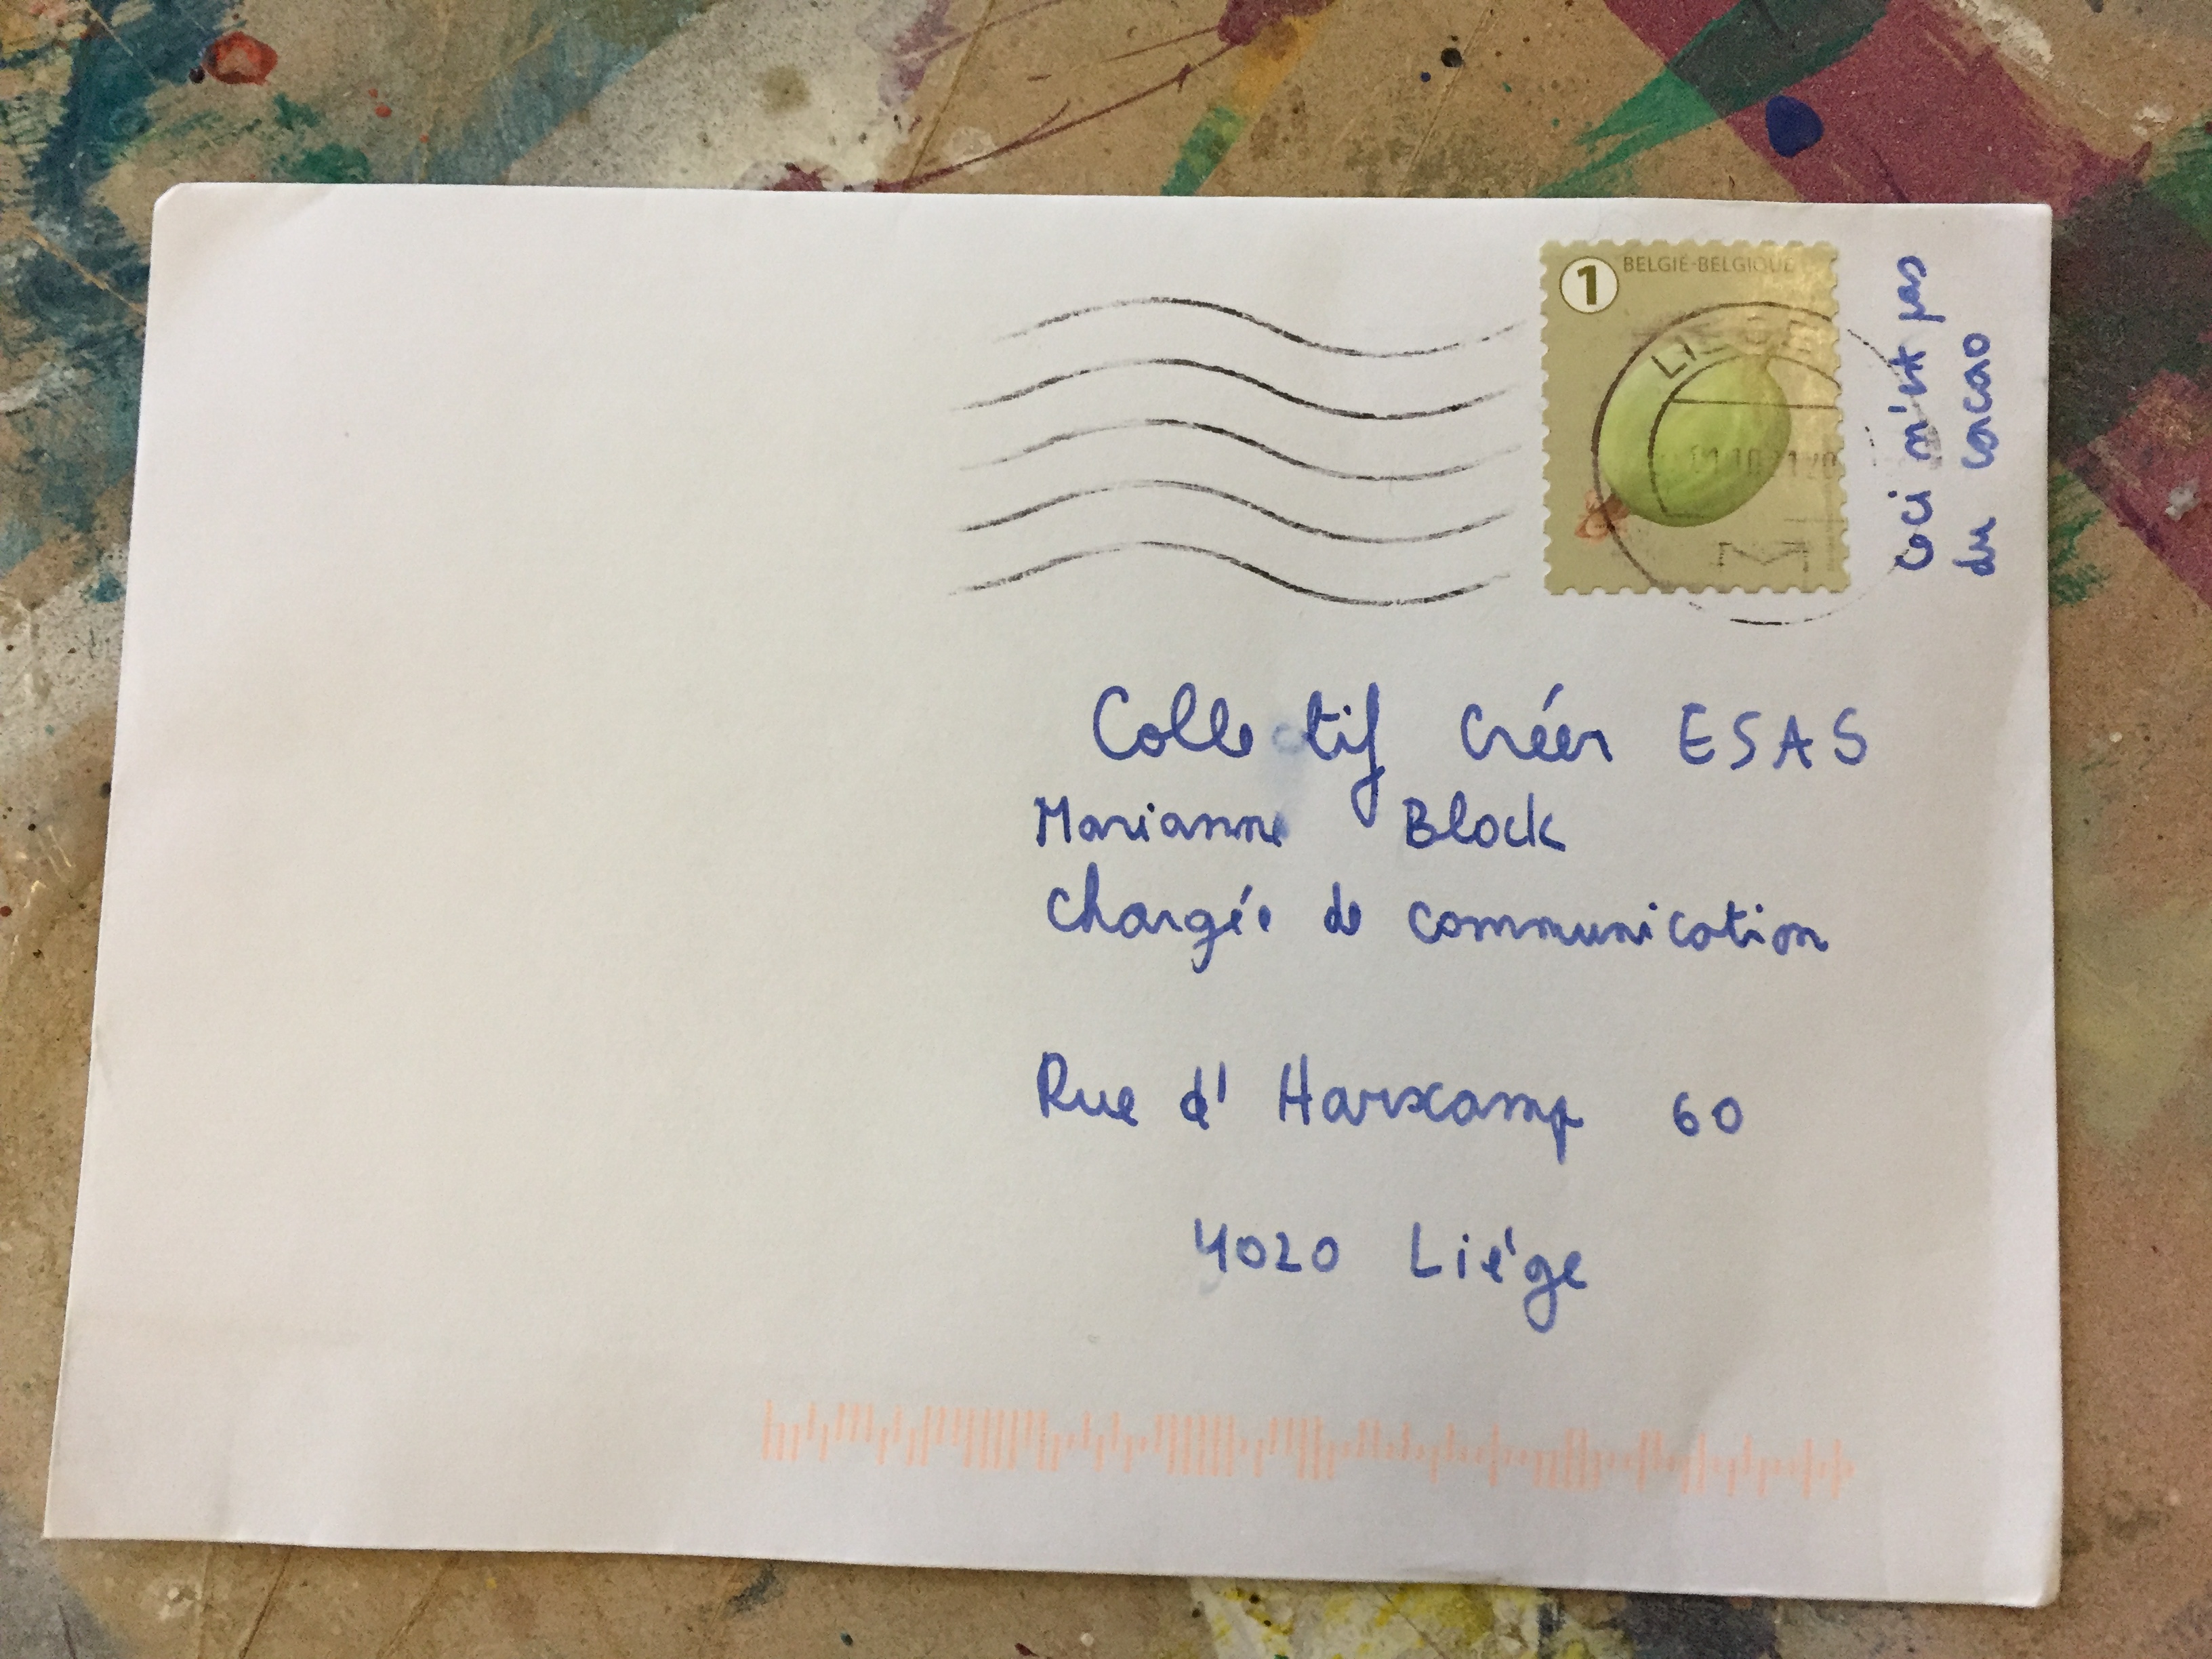 1 BELGIË-BELGIQUE
LIEGE
Ceci n'est pas
du cacao
Collectif Créer ESAS
Marianne Block
Chargée de communication
Rue d' Harscamp 60
4020 Liége